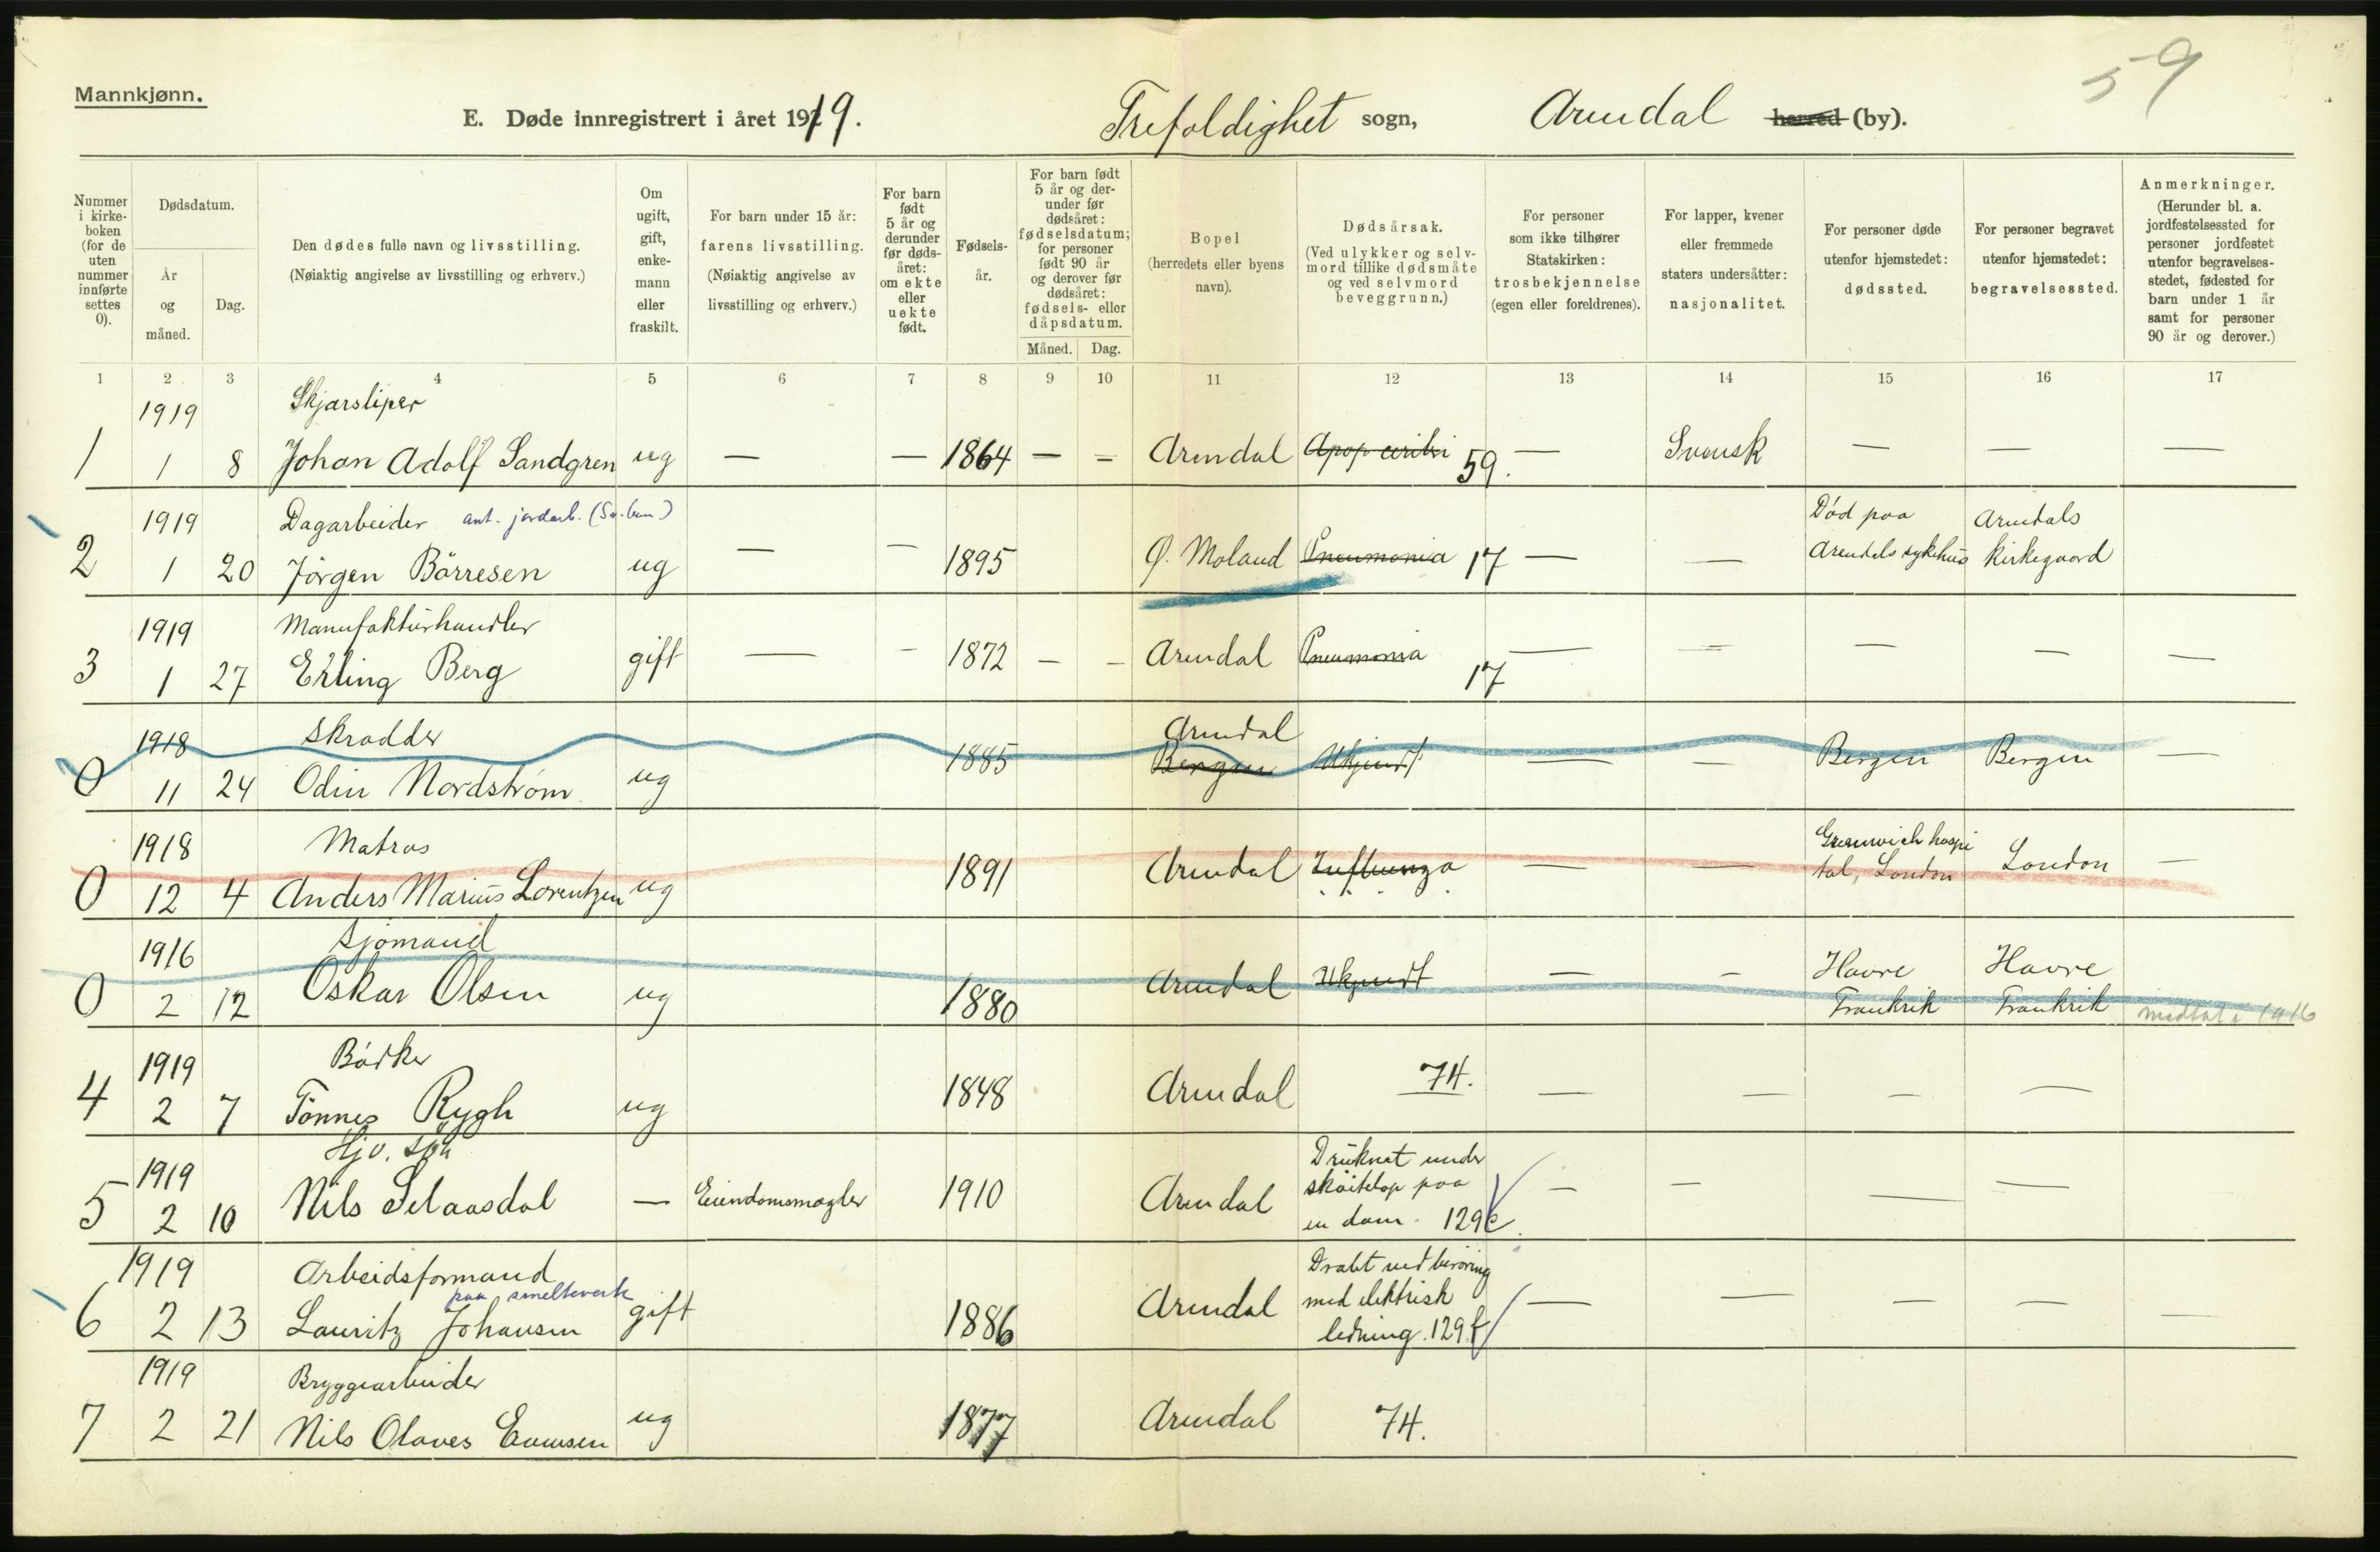 Mannkjønn.
E. Døde innregistrert i året 1919. Trefoldighet sogn, Arendal herred (by).
59
Nummer i kirkeboken (for de uten nummer innførte settes 0).
Dødsdatum.
År og måned.
Dag.
Den dødes fulle navn og livsstilling. (Nøiaktig angivelse av livsstilling og erhverv.)
Om ugift, gift, enkemann eller fraskilt.
For barn under 15 år: farens livsstilling. (Nøiaktig angivelse av livsstilling og erhverv.)
For barn født 5 år og derunder før dødsåret: om ekte eller uekte født.
Fødselsår.
For barn født 5 år og derunder før dødsåret: fødselsdatum; for personer født 90 år og derover før dødsåret: fødsels- eller dåpsdatum.
Måned. Dag.
Bopel (herredets eller byens navn).
Dødsårsak. (Ved ulykker og selvmord tillike dødsmåte og ved selvmord beveggrunn.)
For personer som ikke tilhører Statskirken: trosbekjennelse (egen eller foreldrenes).
For lapper, kvener eller fremmede staters undersåtter: nasjonalitet.
For personer døde utenfor hjemstedet: dødssted.
For personer begravet utenfor hjemstedet: begravelsessted.
Anmerkninger. (Herunder bl. a. jordfestelsessted for personer jordfestet utenfor begravelsesstedet, fødested for barn under 1 år samt for personer 90 år og derover.)
1 2 3 4 5 6 7 8 9 10 11 12 13 14 15 16 17
1919 Skjærsliper
1 1 8 Johan Adolf Sandgren ug — — 1864 — = Arendal Apop. cerebri 59. — Svensk — — —
1919 Dagarbeider ant. jordarb. Død paa Arendals
2 1 20 Jörgen Börresen ug — — 1895 Ø. Moland Pneumonia 17 — — Arendals sykehus kirkegaard
1919 Manufakturhandler
3 1 27 Erling Berg gift — - 1872 — — Arendal Pneumonia 17 — = — — —
1918 Skrædder Arendal
0 11 24 Odin Nordstrøm ug 1885 Bergen Ukjendt — — Bergen Bergen —
1918 Matros Greenwich hospi
0 12 4 Anders Marius Lorentzen ug 1891 Arendal Influenza — — tal, London London —
1916 Sjømand Havre Havre
0 2 12 Oskar Olsen ug 1880 Arendal Ukjendt — - Frankrik Frankrik medtat i 1916
1919 Bödker
4 2 7 Tönnes Rygh ug 1848 Arendal 74. — — — —
1919 Druknet under
sköitelöp paa
5 2 10 Nils Selaasdal — Eiendomsmægler 1910 Arendal en dam. 129c — — — —
1919 Arbeidsformand paa smelteverk Dræbt ved beröring
med elektrisk
6 2 13 Lauritz Johansen gift 1886 Arendal ledning. 129f — — — —
1919 Bryggearbeider
7 2 21 Nils Olaves Evensen ug 1877 Arendal 74.